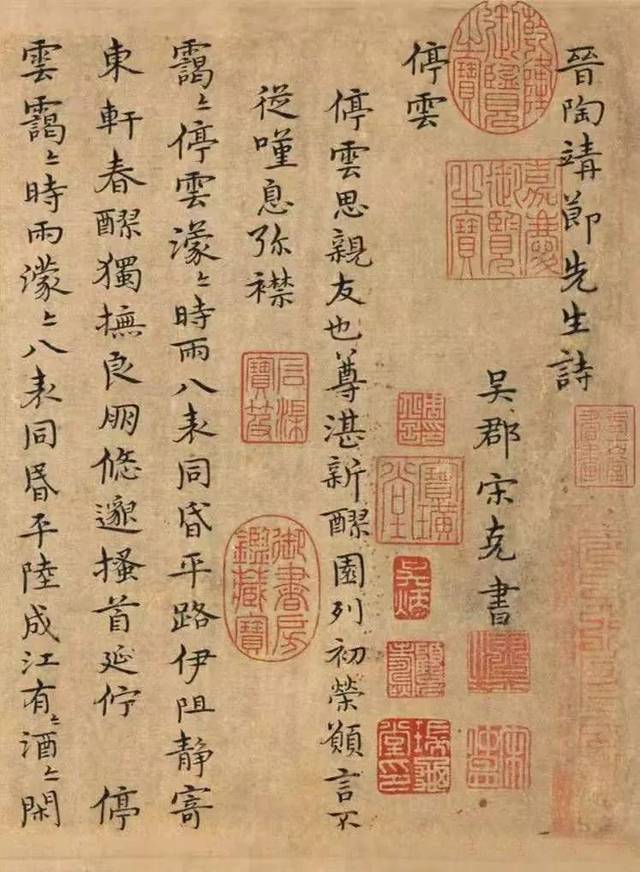 晉陶靖節先生詩
吳郡宋克書
停雲
停雲思親友也尊湛新醪園列初榮願言不
從嘆息弥襟
靄〻停雲濛〻時雨八表同昏平路伊阻靜寄
東軒春醪獨撫良朋悠邈搔首延佇 停
雲靄〻時雨濛〻八表同昏平陸成江有〻酒〻閑
乾隆御覽之寶
嘉慶御覽之寶
御書房鑑藏寶